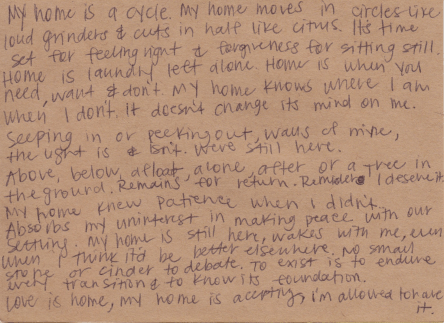 My home is a cycle. My home moves in circles like
loud grinders & cuts in half like citrus. It's time
set for feeling right & forgiveness for sitting still.
Home is laundry left alone. Home is when you
need, want & don't. My home knows where I am
when I don't. It doesn't change its mind on me.
Seeping in or peeking out, walls of mine,
the light is & isn't. We're still here.
Above, below, afloat, alone, after or a tree in
the ground. Remains for return. Reminders I deserve it.
My home knew patience when I didn't.
Absorbs my uninterest in making peace with our
settling. My home is still here, wakes with me, even
when I think it'd be better elsewhere. No small
stone or cinder to debate. To exist is to endure
every transition & to know its foundation.
Love is home, my home is a, I'm allowed to have
it.